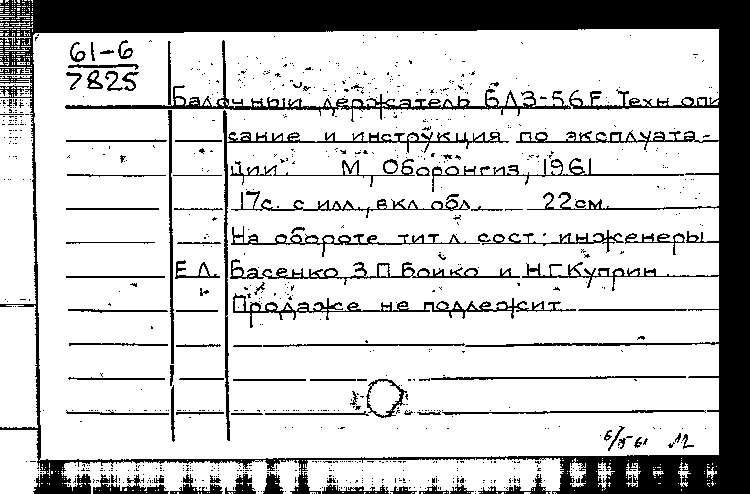 61-6
7825
Балочный держатель БДЗ-56F Техн опи
сание и инструкция по эксплуата-
ции. М, Оборонгиз, 1961
17с. с илл., вкл обл. 22см.
На обороте тит л. сост: инженеры
Е Л. Басенко, З П Бойко и Н.Г.Куприн
Продаже не подлежит